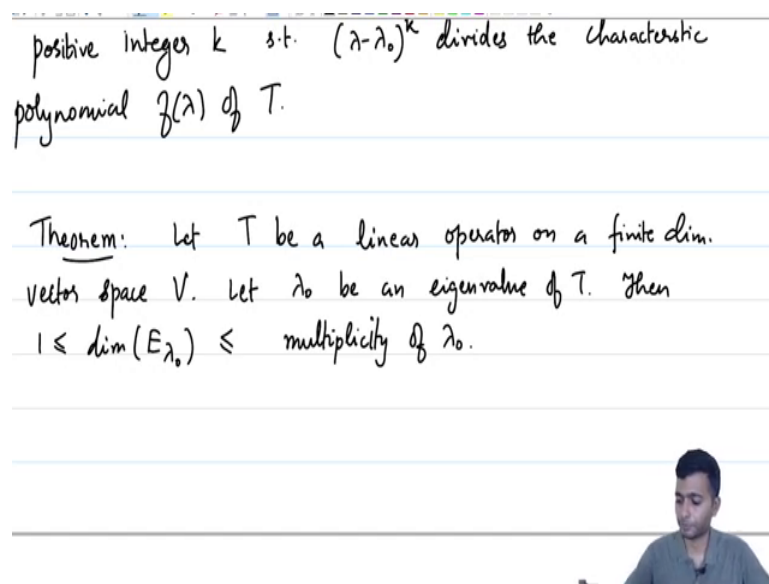 positive integer k s.t. (λ-λ₀)ᵏ divides the characterstic
polynomial f(λ) of T.
Theorem: Let T be a linear operator on a finite dim.
vector space V. Let λ₀ be an eigenvalue of T. Then
1 ≤ dim(E_λ₀) ≤ multiplicity of λ₀.